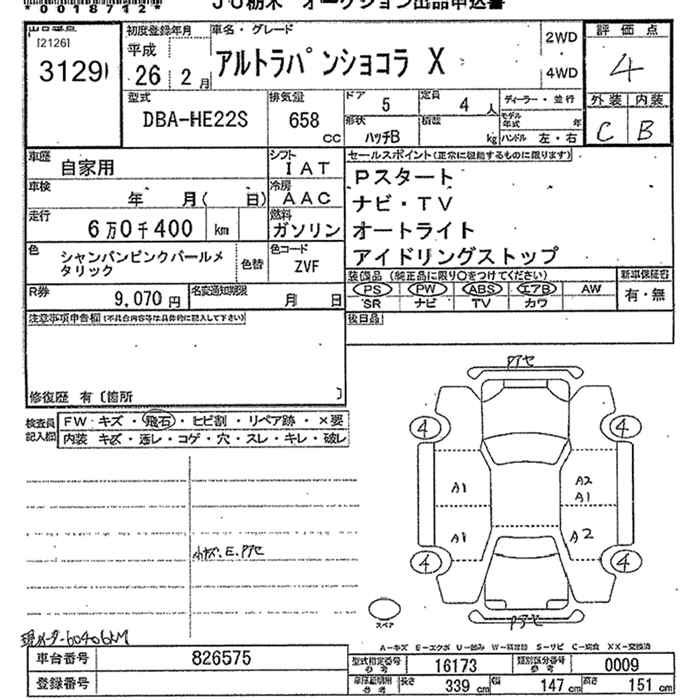 *0018712*
JU栃木 オークション出品申込書
出品番号
[2126]
31291
初度登録年月
平成
26 2 月
車名・グレード
アルトラパンショコラ X
2WD
・
4WD
評価点
4
外装 内装
C B
型式
DBA-HE22S
排気量
658 CC
ドア
5
定員
4 人
ディーラー・並行
モデル年式 年
ハンドル 左・右
形状
ハッチB
積載
kg
車歴
自家用
シフト
IAT
車検
年 月( 日)
冷房
AAC
走行
6万0千400 km
燃料
ガソリン
色
シャンパンピンクパールメタリック
色替
色コード
ZVF
R券
9,070 円
名変通知期限
月 日
セールスポイント(正常に稼動するものに限ります)
Pスタート
ナビ・TV
オートライト
アイドリングストップ
装備品 (純正品に限り〇をつけてください)
PS PW ABS エアB AW
SR ナビ TV カワ
新車保証書
有・無
注意事項申告欄(不具合内容等は具体的に記入して下さい)
後日品
修復歴 有〔箇所 〕
検査員記入欄
FW キズ・飛石・ヒビ割・リペア跡・×要
内装 キズ・汚レ・コゲ・穴・スレ・キレ・破レ
小キズ・E.アセ
アセ
4 4
A1 A2
A1
A1 A2
4 4
アセ
スペア
現メーター60406KM
A-キズ E-エクボ U-凹み W-補修跡 S-サビ C-腐食 XX-交換済
車台番号
826575
登録番号
型式指定番号
参考
16173
類別区分番号
参考
0009
車庫証明用
参考
長さ
339 cm
幅
147 cm
高さ
151 cm